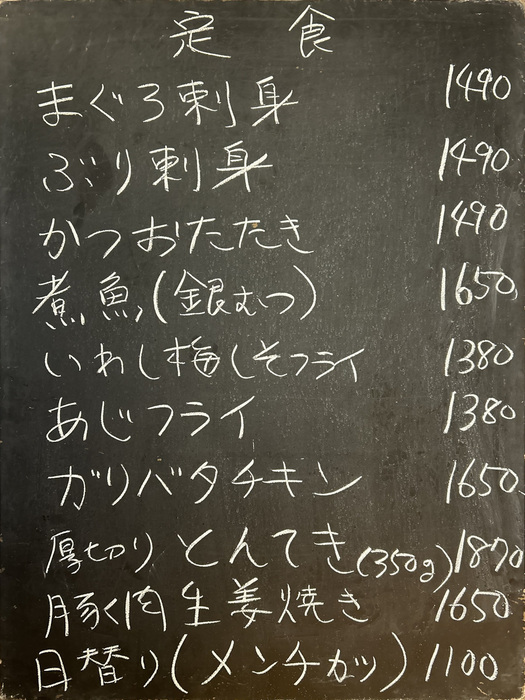 定食
まぐろ刺身 1490
ぶり刺身 1490
かつおたたき 1490
煮魚(銀むつ) 1650
いわし梅しそフライ 1380
あじフライ 1380
ガリバタチキン 1650
厚切りとんてき(350g) 1870
豚肉生姜焼き 1650
日替り(メンチカツ) 1100